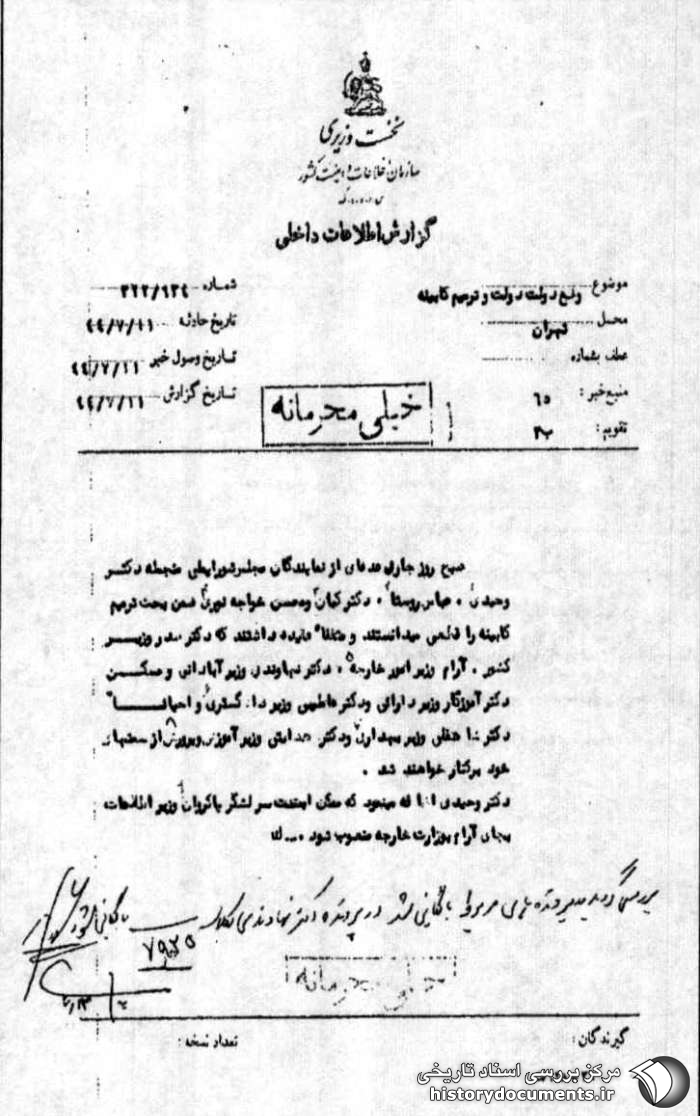 نخست وزیری
سازمان اطلاعات و امنیت کشور
س.ا.و.ا.ک
گزارش اطلاعات داخلی
موضوع وضع دولت دولت و ترمیم کابینه
محل تهران
عطف بشماره
منبع خبر : ۶۵
تقویم :
شماره ۳۲۲/۹۳۴
تاریخ حادثه ۴۴/۷/۱۱
تاریخ وصول خبر ۴۴/۷/۱۱
تاریخ گزارش ۴۴/۷/۱۱
خیلی محرمانه
صبح روز جاری عده‌ای از نمایندگان مجلس شورایملی منجمله دکتر
وحیدی ، عباس روستا ، دکتر کیان و محسن خواجه نوری ضمن بحث ترمیم
کابینه را قطعی میدانستند و متفقا عقیده داشتند که دکتر صدر وزیر
کشور . آرام وزیر امور خارجه ، دکتر نهاوندی وزیر آبادانی و مسکن
دکتر آموزگار وزیر دارائی و دکتر عاملی وزیر دادگستری و احیانا
دکتر شاهقلی وزیر بهداری و دکتر هدایتی وزیر آموزش و پرورش از سمتهای
خود برکنار خواهند شد .
دکتر وحیدی اضافه مینمود که ممکن است سرلشگر پاکروان وزیر اطلاعات
بجای آرام بوزارت خارجه منصوب شود
بررسی گردید پرونده های مربوط بایگانی شد در پرونده دکتر نهاوندی کلاسه بایگانی شود
۷۹۲۵
خیلی محرمانه
گیرندگان :
تعداد نسخه :
مرکز بررسی اسناد تاریخی
historydocuments.ir